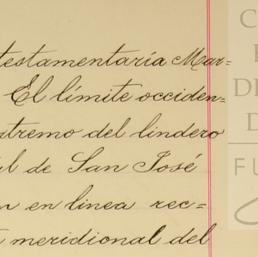 testamentaría Mar=
El límite occiden=
stremo del lindero
de San José
en linea rec=
meridional del
C
D
D
FU